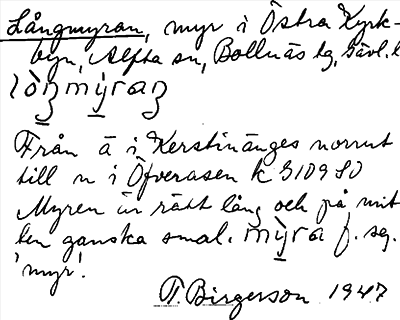 Långmyran, myr i Östra Kyrk-
byn, Alfta sn, Bollnäs tg, Gävl. l
Från ä i Kerstinänges norrut
till n i Öfverasen k 3109 80
Myren är rätt lång och på mit
ten ganska smal. mỳra f. sg.
'myr'.
T. Birgerson 1947